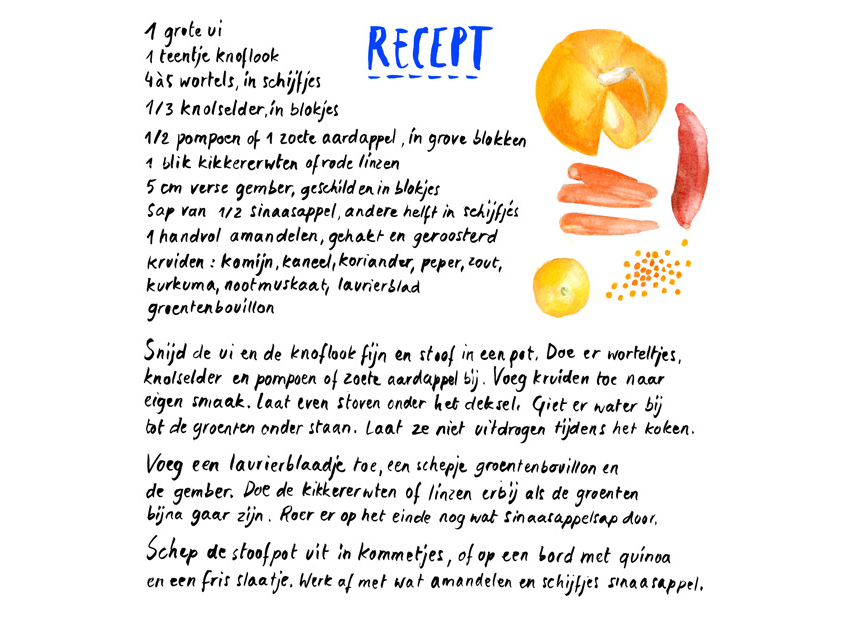 RECEPT
1 grote ui
1 teentje knoflook
4 à 5 wortels, in schijfjes
1/3 knolselder, in blokjes
1/2 pompoen of 1 zoete aardappel, in grove blokken
1 blik kikkererwten of rode linzen
5 cm verse gember, geschild en in blokjes
Sap van 1/2 sinaasappel, andere helft in schijfjes
1 handvol amandelen, gehakt en geroosterd
kruiden: komijn, kaneel, koriander, peper, zout,
kurkuma, nootmuskaat, laurierblad
groentenbouillon
Snijd de ui en de knoflook fijn en stoof in een pot. Doe er worteltjes,
knolselder en pompoen of zoete aardappel bij. Voeg kruiden toe naar
eigen smaak. Laat even stoven onder het deksel. Giet er water bij
tot de groenten onder staan. Laat ze niet uitdrogen tijdens het koken.
Voeg een laurierblaadje toe, een schepje groentenbouillon en
de gember. Doe de kikkererwten of linzen erbij als de groenten
bijna gaar zijn. Roer er op het einde nog wat sinaasappelsap door.
Schep de stoofpot uit in kommetjes, of op een bord met quinoa
en een fris slaatje. Werk af met wat amandelen en schijfjes sinaasappel.